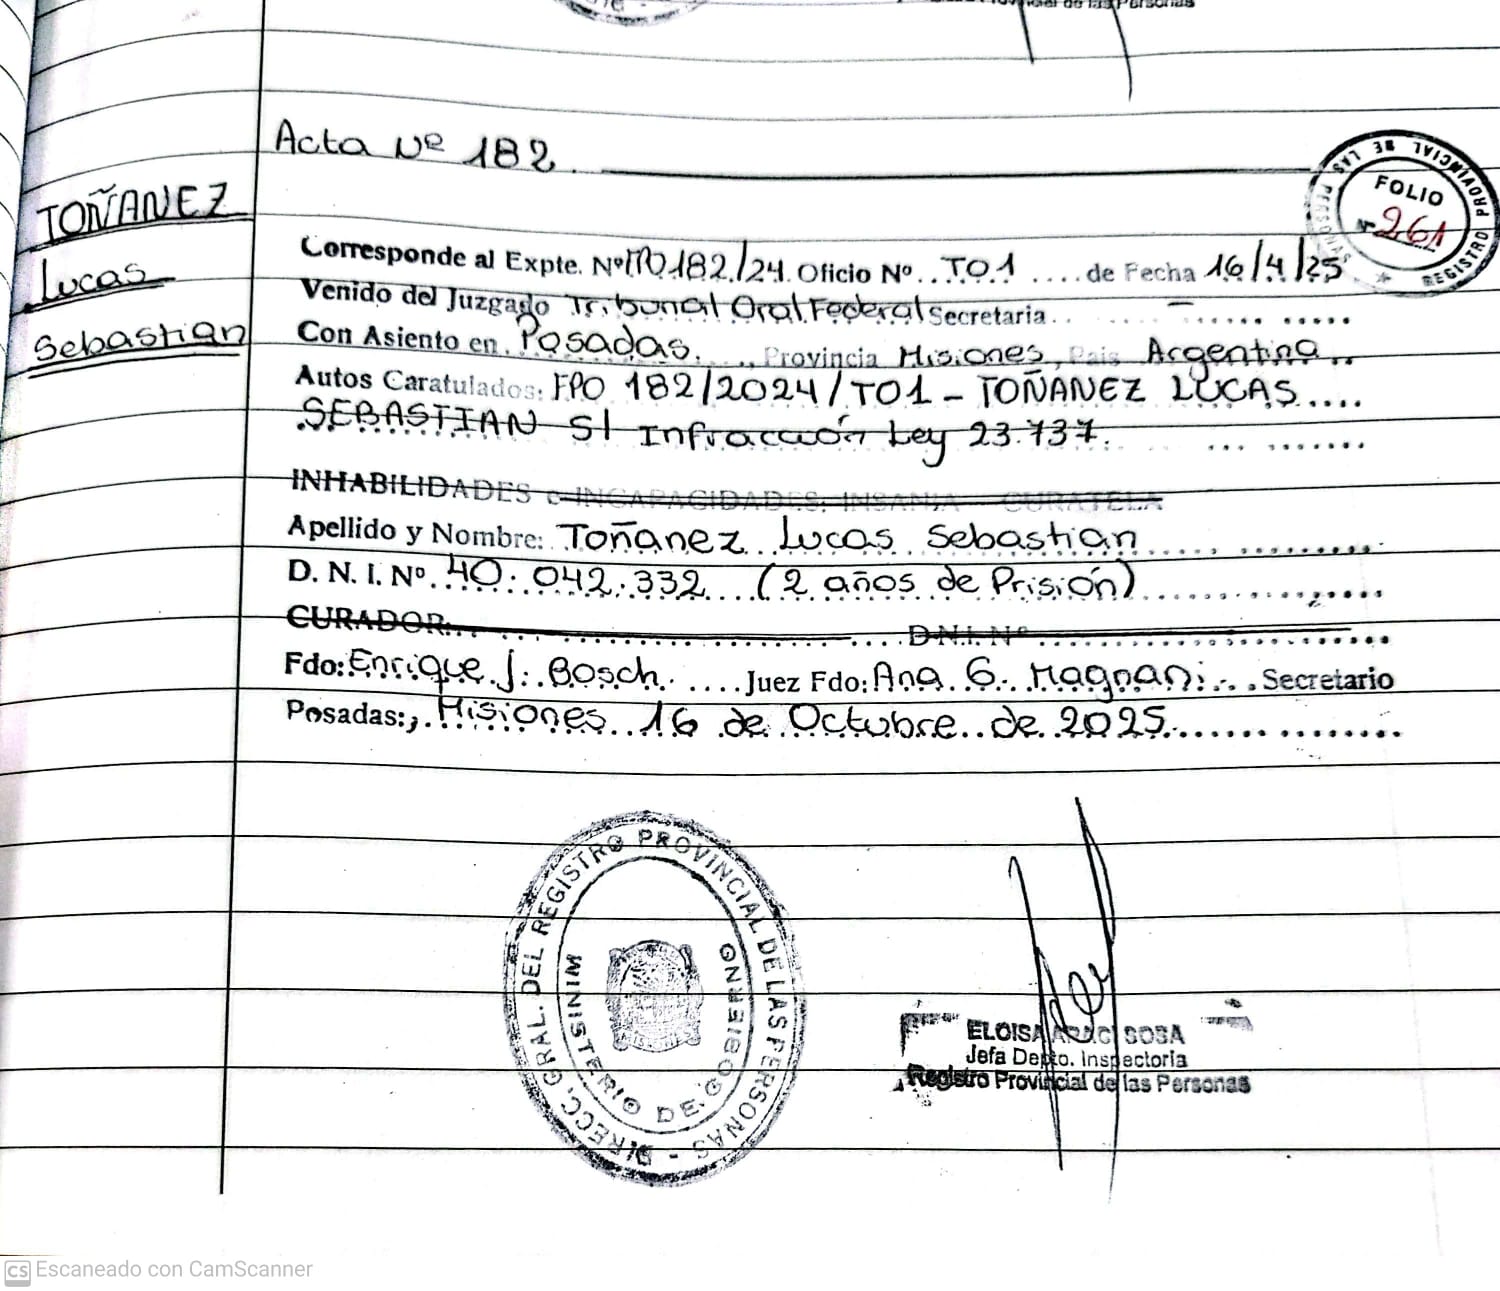 de las Personas
Acta Nº 182
TOÑANEZ
Lucas
Sebastian
REGISTRO PROVINCIAL DE LAS PERSONAS
FOLIO
Nº 261
Corresponde al Expte. Nº FPO 182/24. Oficio Nº.. TO1 .... de Fecha 16/4/25
Venido del Juzgado Tribunal Oral Federal Secretaria.. – ......
Con Asiento en. Posadas. .., Provincia Misiones, Pais Argentina..
Autos Caratulados: FPO 182/2024/TO1 - TOÑANEZ LUCAS....
SEBASTIAN S/ Infracción Ley 23.737.
INHABILIDADES e INCAPACIDADES: INSANIA CURATELA
Apellido y Nombre: Toñanez Lucas Sebastian
D. N. I. Nº. 40.042.332 (2 años de Prisión)
CURADOR: D.N.I. Nº
Fdo: Enrique J. Bosch ....Juez Fdo: Ana G. Magnani... Secretario
Posadas:, Misiones 16 de Octubre de 2025
DIRECC. GRAL. DEL REGISTRO PROVINCIAL DE LAS PERSONAS -
MINISTERIO DE GOBIERNO
ELOISA ARACI SOSA
Jefa Depto. Inspectoria
Registro Provincial de las Personas
CS Escaneado con CamScanner